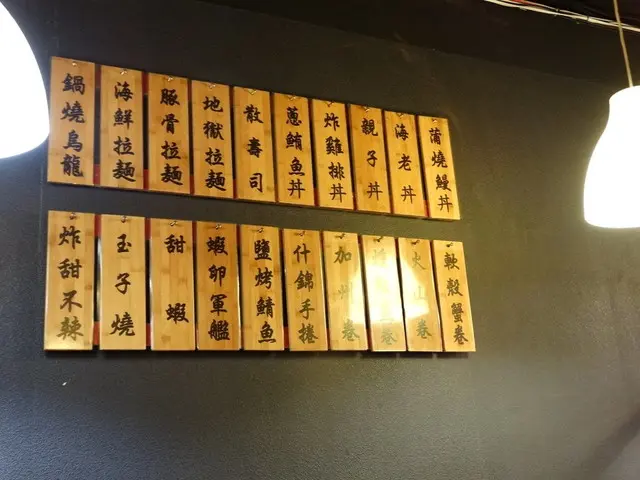 鍋燒烏龍
海鮮拉麵
豚骨拉麵
地獄拉麵
散壽司
蔥鮪魚丼
炸雞排丼
親子丼
海老丼
蒲燒鰻丼
炸甜不辣
玉子燒
甜蝦
蝦卵軍艦
鹽烤鯖魚
什錦手捲
加州卷
卷
火山卷
軟殼蟹卷